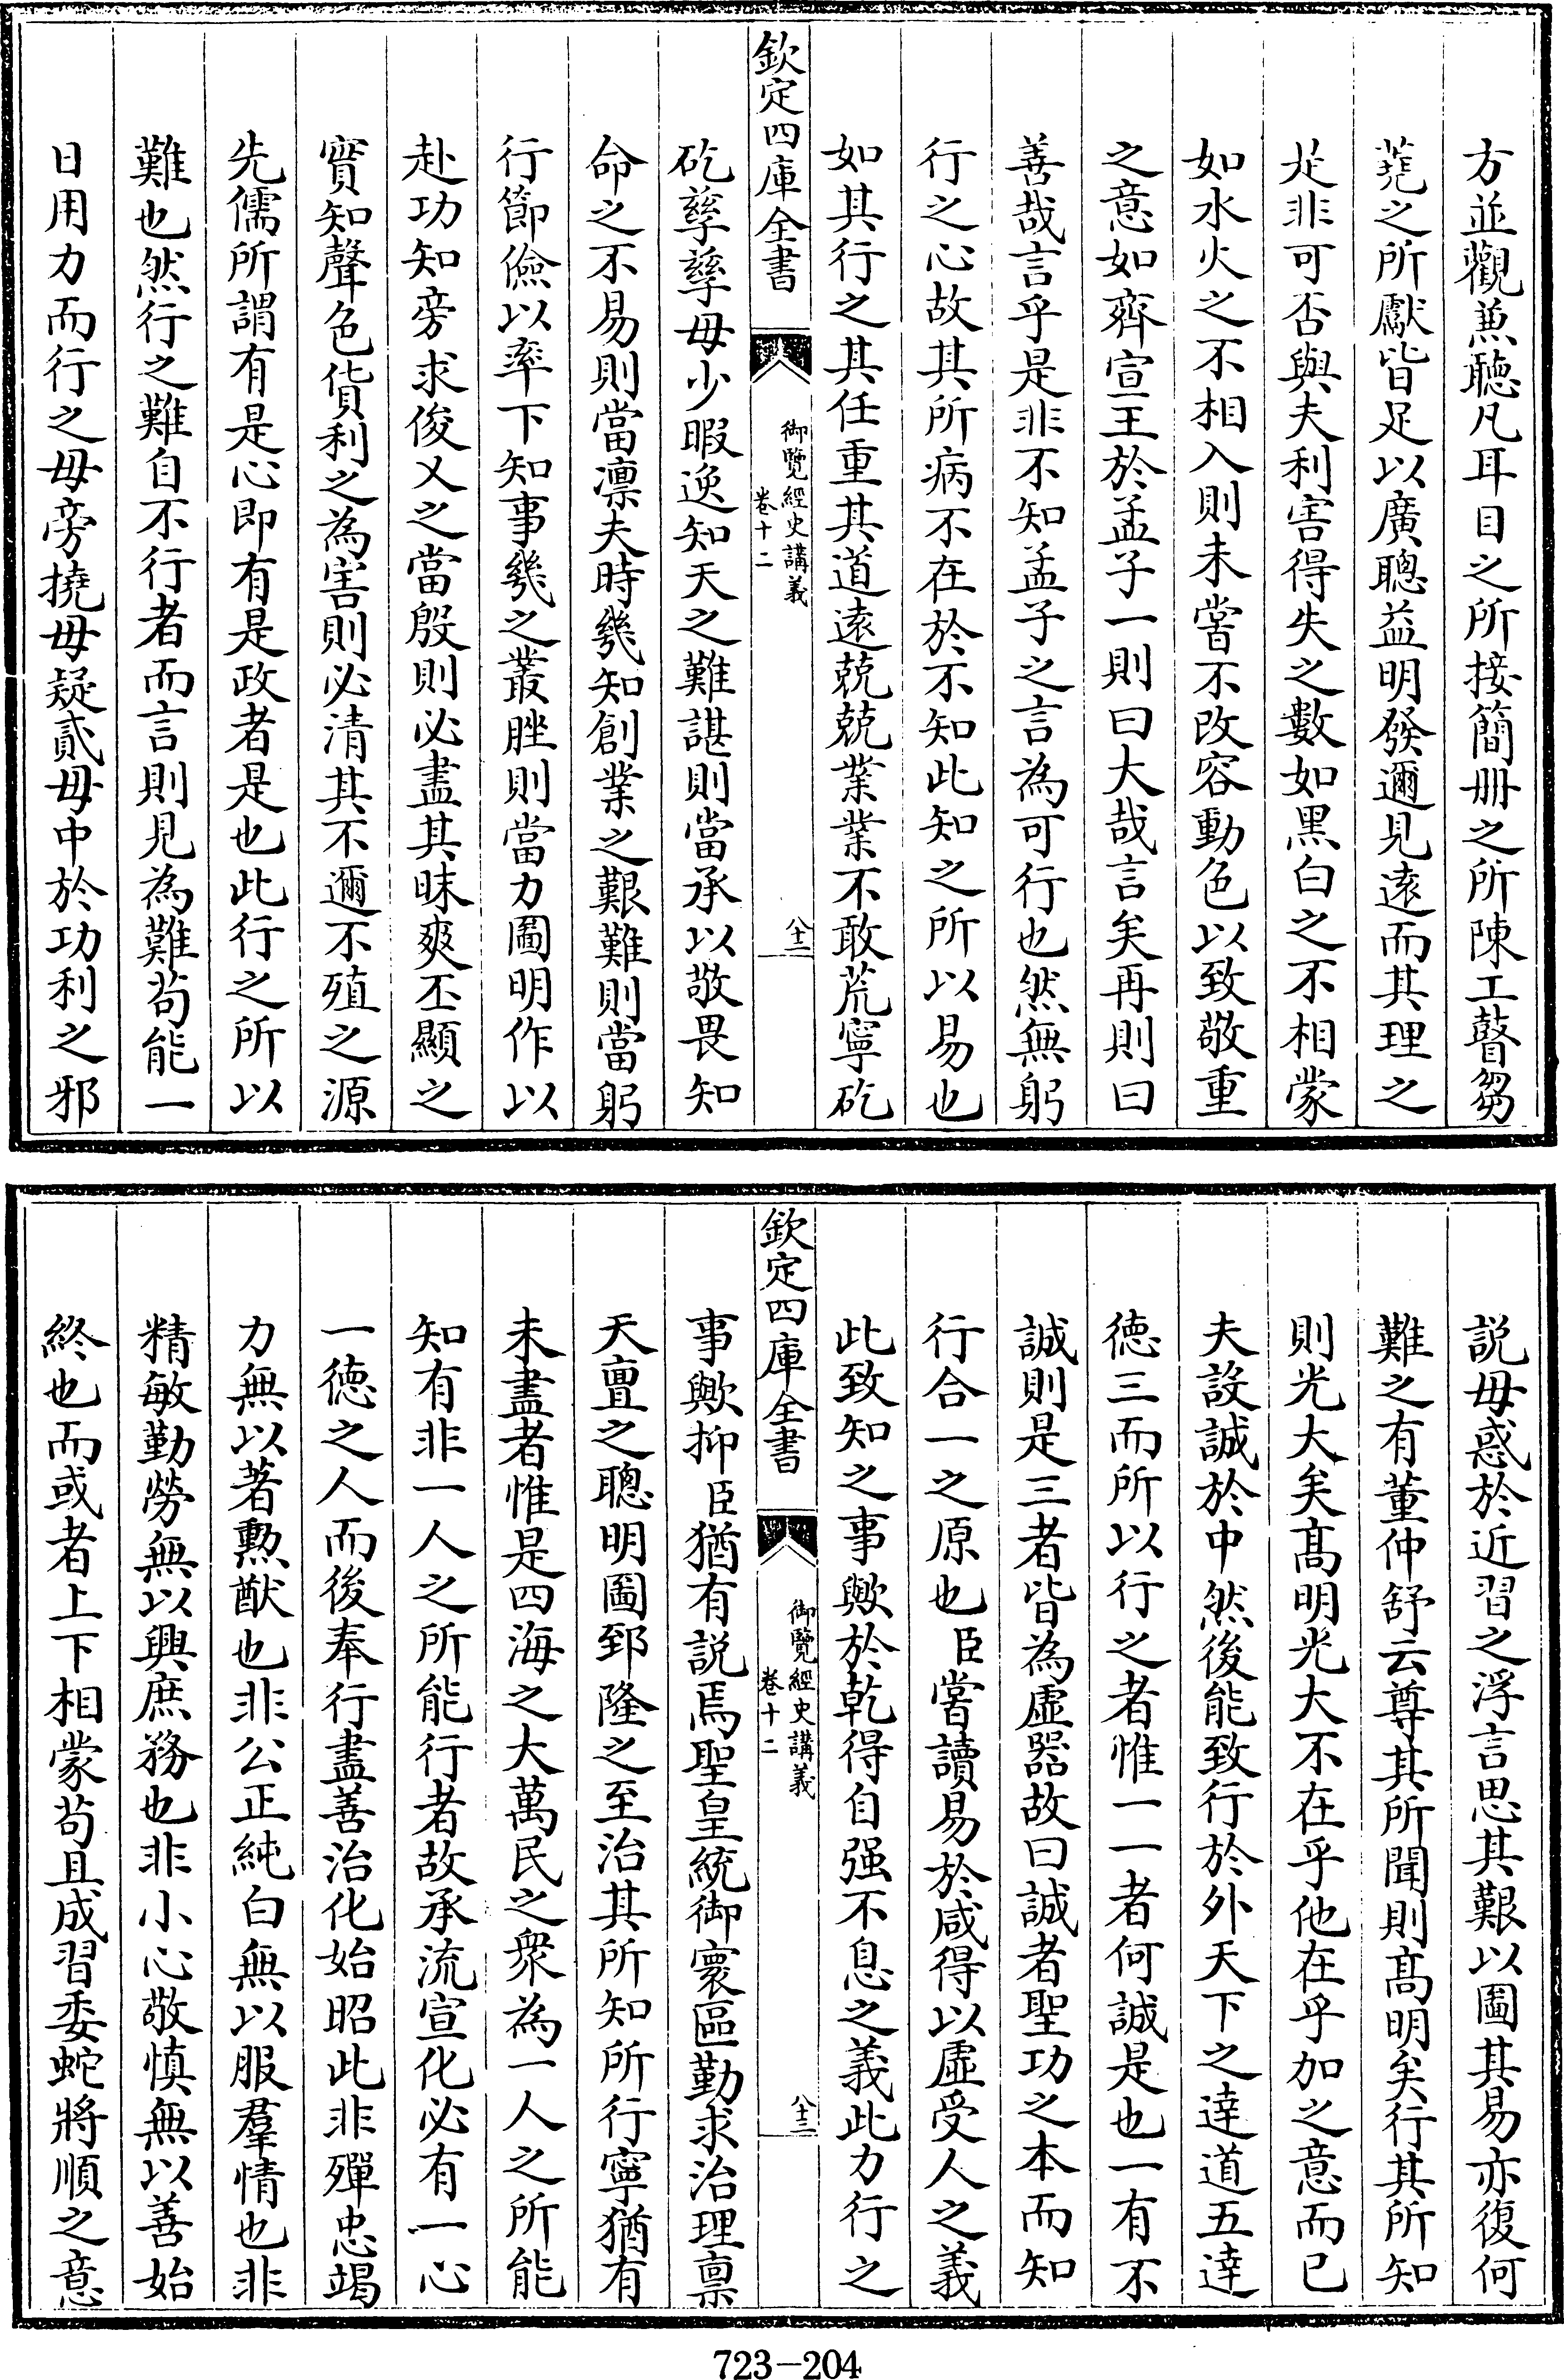 方並觀兼聽凡耳目之所接簡冊之所陳工瞽芻
蕘之所獻皆足以廣聰益明發邇見遠而其理之
是非可否與夫利害得失之數如黒白之不相蒙
如水火之不相入則未嘗不改容動色以致敬重
之意如齊宣王於孟子一則曰大哉言矣再則曰
善哉言乎是非不知孟子之言為可行也然無躬
行之心故其所病不在於不知此知之所以易也
如其行之其任重其道遠兢兢業業不敢荒寧矻
欽定四庫全書
御覽經史講義
卷十二
八十二
矻孳孳毋少暇逸知天之難諶則當承以敬畏知
命之不易則當凛夫時幾知創業之艱難則當躬
行節儉以率下知事幾之叢脞則當力圖明作以
赴功知旁求俊乂之當殷則必盡其昧爽丕顯之
實知聲色貨利之為害則必清其不邇不殖之源
先儒所謂有是心即有是政者是也此行之所以
難也然行之難自不行者而言則見為難茍能一
日用力而行之毋旁撓毋疑貳毋中於功利之邪
説毋惑於近習之浮言思其艱以圖其易亦復何
難之有董仲舒云尊其所聞則髙明矣行其所知
則光大矣髙明光大不在乎他在乎加之意而已
夫設誠於中然後能致行於外天下之達道五達
徳三而所以行之者惟一一者何誠是也一有不
誠則是三者皆為虚器故曰誠者聖功之本而知
行合一之原也臣嘗讀易於咸得以虚受人之義
此致知之事歟於乾得自强不息之義此力行之
欽定四庫全書
御覽經史講義
卷十二
八十三
事歟抑臣猶有説焉聖皇統御寰區勤求治理禀
天亶之聰明圖郅隆之至治其所知所行寧猶有
未盡者惟是四海之大萬民之衆為一人之所能
知有非一人之所能行者故承流宣化必有一心
一徳之人而後奉行盡善治化始昭此非殫忠竭
力無以著勲猷也非公正純白無以服羣情也非
精敏勤勞無以興庶務也非小心敬慎無以善始
終也而或者上下相蒙茍且成習委蛇將順之意
723-204